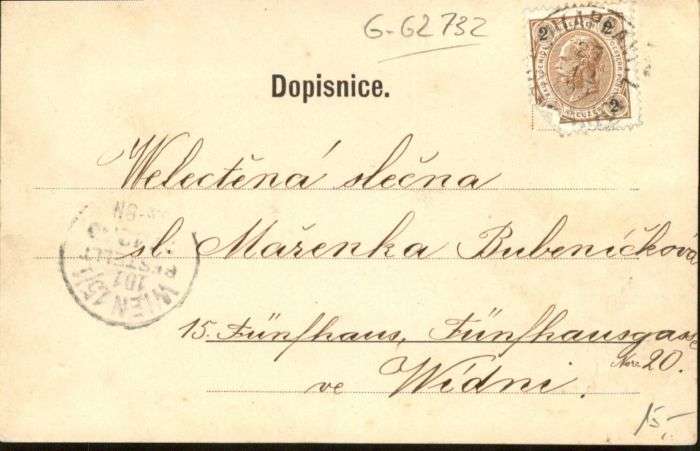 G-G2732
2 2
Dopisnice.
Welectěná slečna
sl. Mařenka Bubeníčková
15. Fünfhaus, Fünfhausgasse
Nro 20.
ve Wídni.
WIEN 15/1
BESTELLT
2
15,-